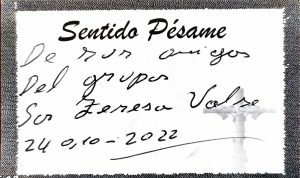 Sentido Pésame
De sus amigos
Del grupo
Sor Teresa Valse
24 0,10-2022